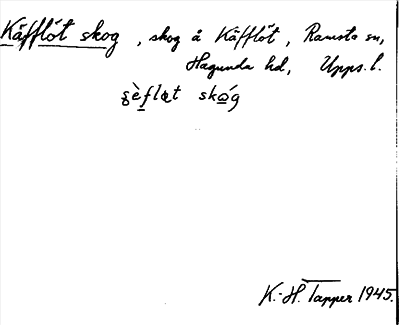 Käfflöt skog, skog å Käfflöt, Ramsta sn,
Hagunda hd, Upps. l.
K.-H. Tapper 1945.